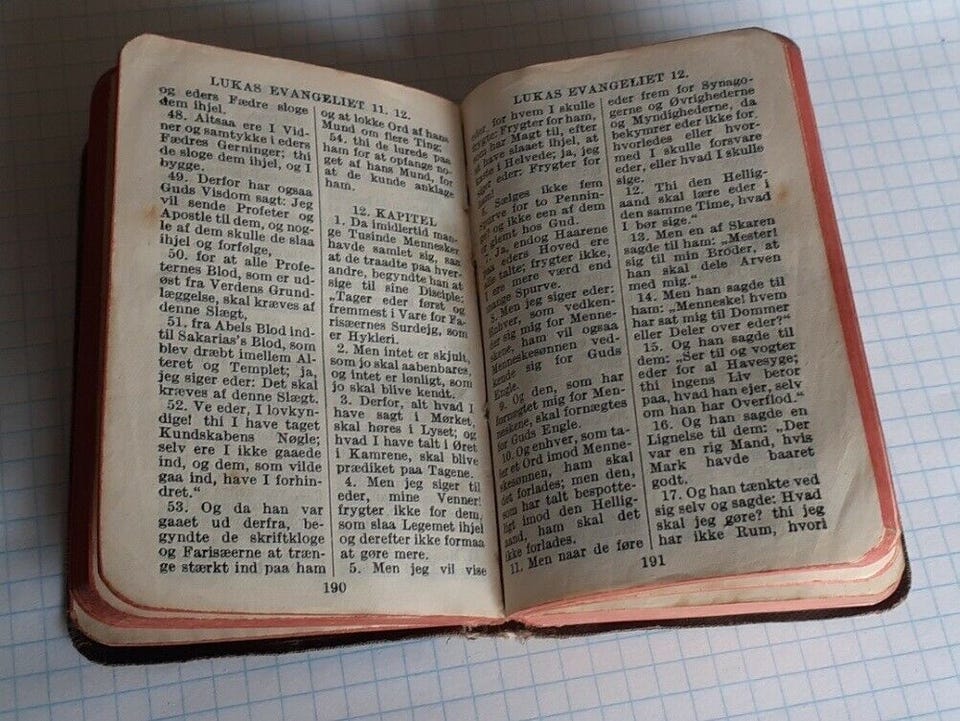 LUKAS EVANGELIET 11. 12.
og eders Fædre sloge
dem ihjel.
48. Altsaa ere I Vid-
ner og samtykke i eders
Fædres Gerninger; thi
de sloge dem ihjel, og I
bygge.
49. Derfor har ogsaa
Guds Visdom sagt: Jeg
vil sende Profeter og
Apostle til dem, og nog-
le af dem skulle de slaa
ihjel og forfølge,
50. for at alle Profe-
ternes Blod, som er ud-
øst fra Verdens Grund-
læggelse, skal kræves af
denne Slægt,
51. fra Abels Blod ind-
til Sakarias's Blod, som
blev dræbt imellem Al-
teret og Templet; ja,
jeg siger eder: Det skal
kræves af denne Slægt.
52. Ve eder, I lovkyn-
dige! thi I have taget
Kundskabens Nøgle;
selv ere I ikke gaaede
ind, og dem, som vilde
gaa ind, have I forhin-
dret.“
53. Og da han var
gaaet ud derfra, be-
gyndte de skriftkloge
og Farisæerne at træn-
ge stærkt ind paa ham
og at lokke Ord af hans
Mund om flere Ting;
54. thi de lurede paa
ham for at opfange no-
get af hans Mund, for
at de kunde anklage
ham.
12. KAPITEL
1. Da imidlertid man-
ge Tusinde Mennesker
havde samlet sig, saa
at de traadte paa hver-
andre, begyndte han at
sige til sine Disciple:
„Tager eder først og
fremmest i Vare for Fa-
risæernes Surdejg, som
er Hykleri.
2. Men intet er skjult,
som jo skal aabenbares,
og intet er lønligt, som
jo skal blive kendt.
3. Derfor, alt hvad I
have sagt i Mørket,
skal høres i Lyset; og
hvad I have talt i Øret
i Kamrene, skal blive
prædiket paa Tagene.
4. Men jeg siger til
eder, mine Venner!
frygter ikke for dem,
som slaa Legemet ihjel
og derefter ikke formaa
at gøre mere.
5. Men jeg vil vise
190
LUKAS EVANGELIET 12.
eder, for hvem I skulle
frygte: Frygter for ham,
som har Magt til, efter
at have slaaet ihjel, at
kaste i Helvede; ja, jeg
siger eder: Frygter for
ham!
6. Sælges ikke fem
Spurve for to Pennin-
ge? og ikke een af dem
er glemt hos Gud.
7. Ja, endog Haarene
paa eders Hoved ere
alle talte; frygter ikke,
I ere mere værd end
mange Spurve.
8. Men jeg siger eder:
Enhver, som vedken-
der sig mig for Menne-
skene, ham vil ogsaa
Menneskesønnen ved-
kende sig for Guds
Engle.
9. Og den, som har
fornægtet mig for Men-
neskene, skal fornægtes
for Guds Engle.
10. Og enhver, som ta-
ler et Ord imod Menne-
skesønnen, ham skal
det forlades; men den,
som har talt bespotte-
ligt imod den Hellig-
aand, ham skal det
ikke forlades.
11. Men naar de føre
eder frem for Synago-
gerne og Øvrighederne
og Myndighederne, da
bekymrer eder ikke for,
hvorledes eller hvor-
med I skulle forsvare
eder, eller hvad I skulle
sige.
12. Thi den Hellig-
aand skal lære eder i
den samme Time, hvad
I bør sige.“
13. Men en af Skaren
sagde til ham: „Mester!
sig til min Broder, at
han skal dele Arven
med mig.“
14. Men han sagde til
ham: „Menneske! hvem
har sat mig til Dommer
eller Deler over eder?“
15. Og han sagde til
dem: „Ser til og vogter
eder for al Havesyge;
thi ingens Liv beror
paa, hvad han ejer, selv
om han har Overflod.“
16. Og han sagde en
Lignelse til dem: „Der
var en rig Mand, hvis
Mark havde baaret
godt.
17. Og han tænkte ved
sig selv og sagde: Hvad
skal jeg gøre? thi jeg
har ikke Rum, hvori
191